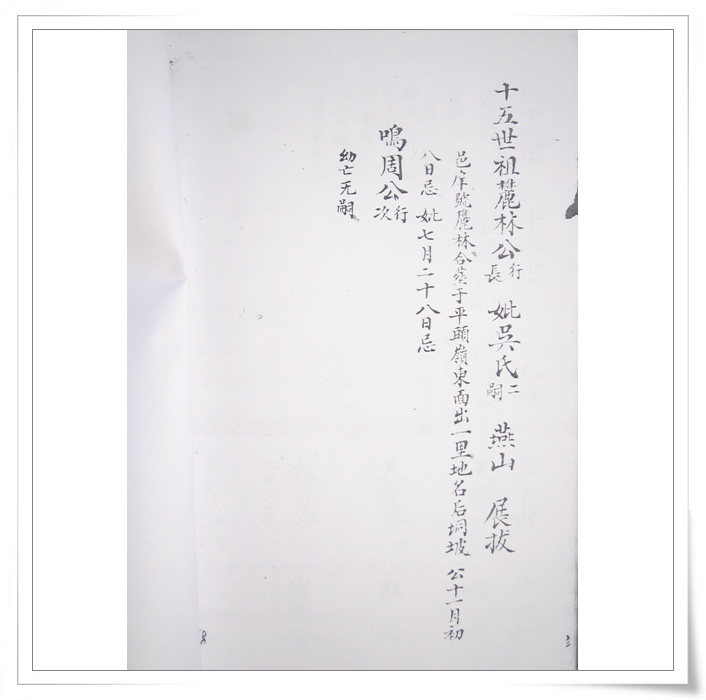 十五世祖麓林公行長 妣吳氏二嗣 燕山 展拔
邑庠號麓林合葬于平頭嶺東面出一里地名后垌坡 公十一月初
八日忌 妣七月二十八日忌
鳴周公行次
幼亡无嗣